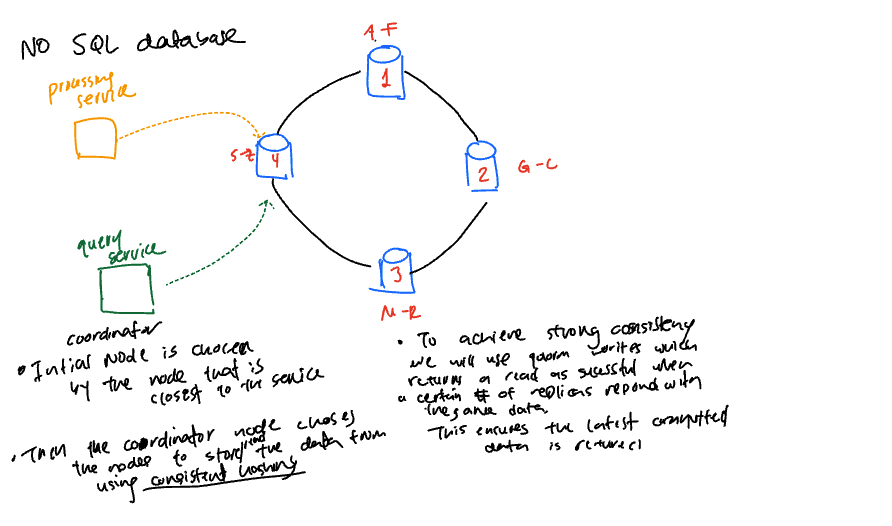 NO SQL database
A-F
1
processing
service
S-Z
4
2
G-L
query
service
3
M-R
coordinator
• Initial Node is chosen
by the node that is
closest to the service
• Then the coordinator node choses
the nodes to store/read the data from
using consistent hashing
• To achieve strong consisteny
we will use qoorm writes which
returns a read as sucessful when
a certain # of replicas repond with
the same data
This ensures the latest committed
data is returned